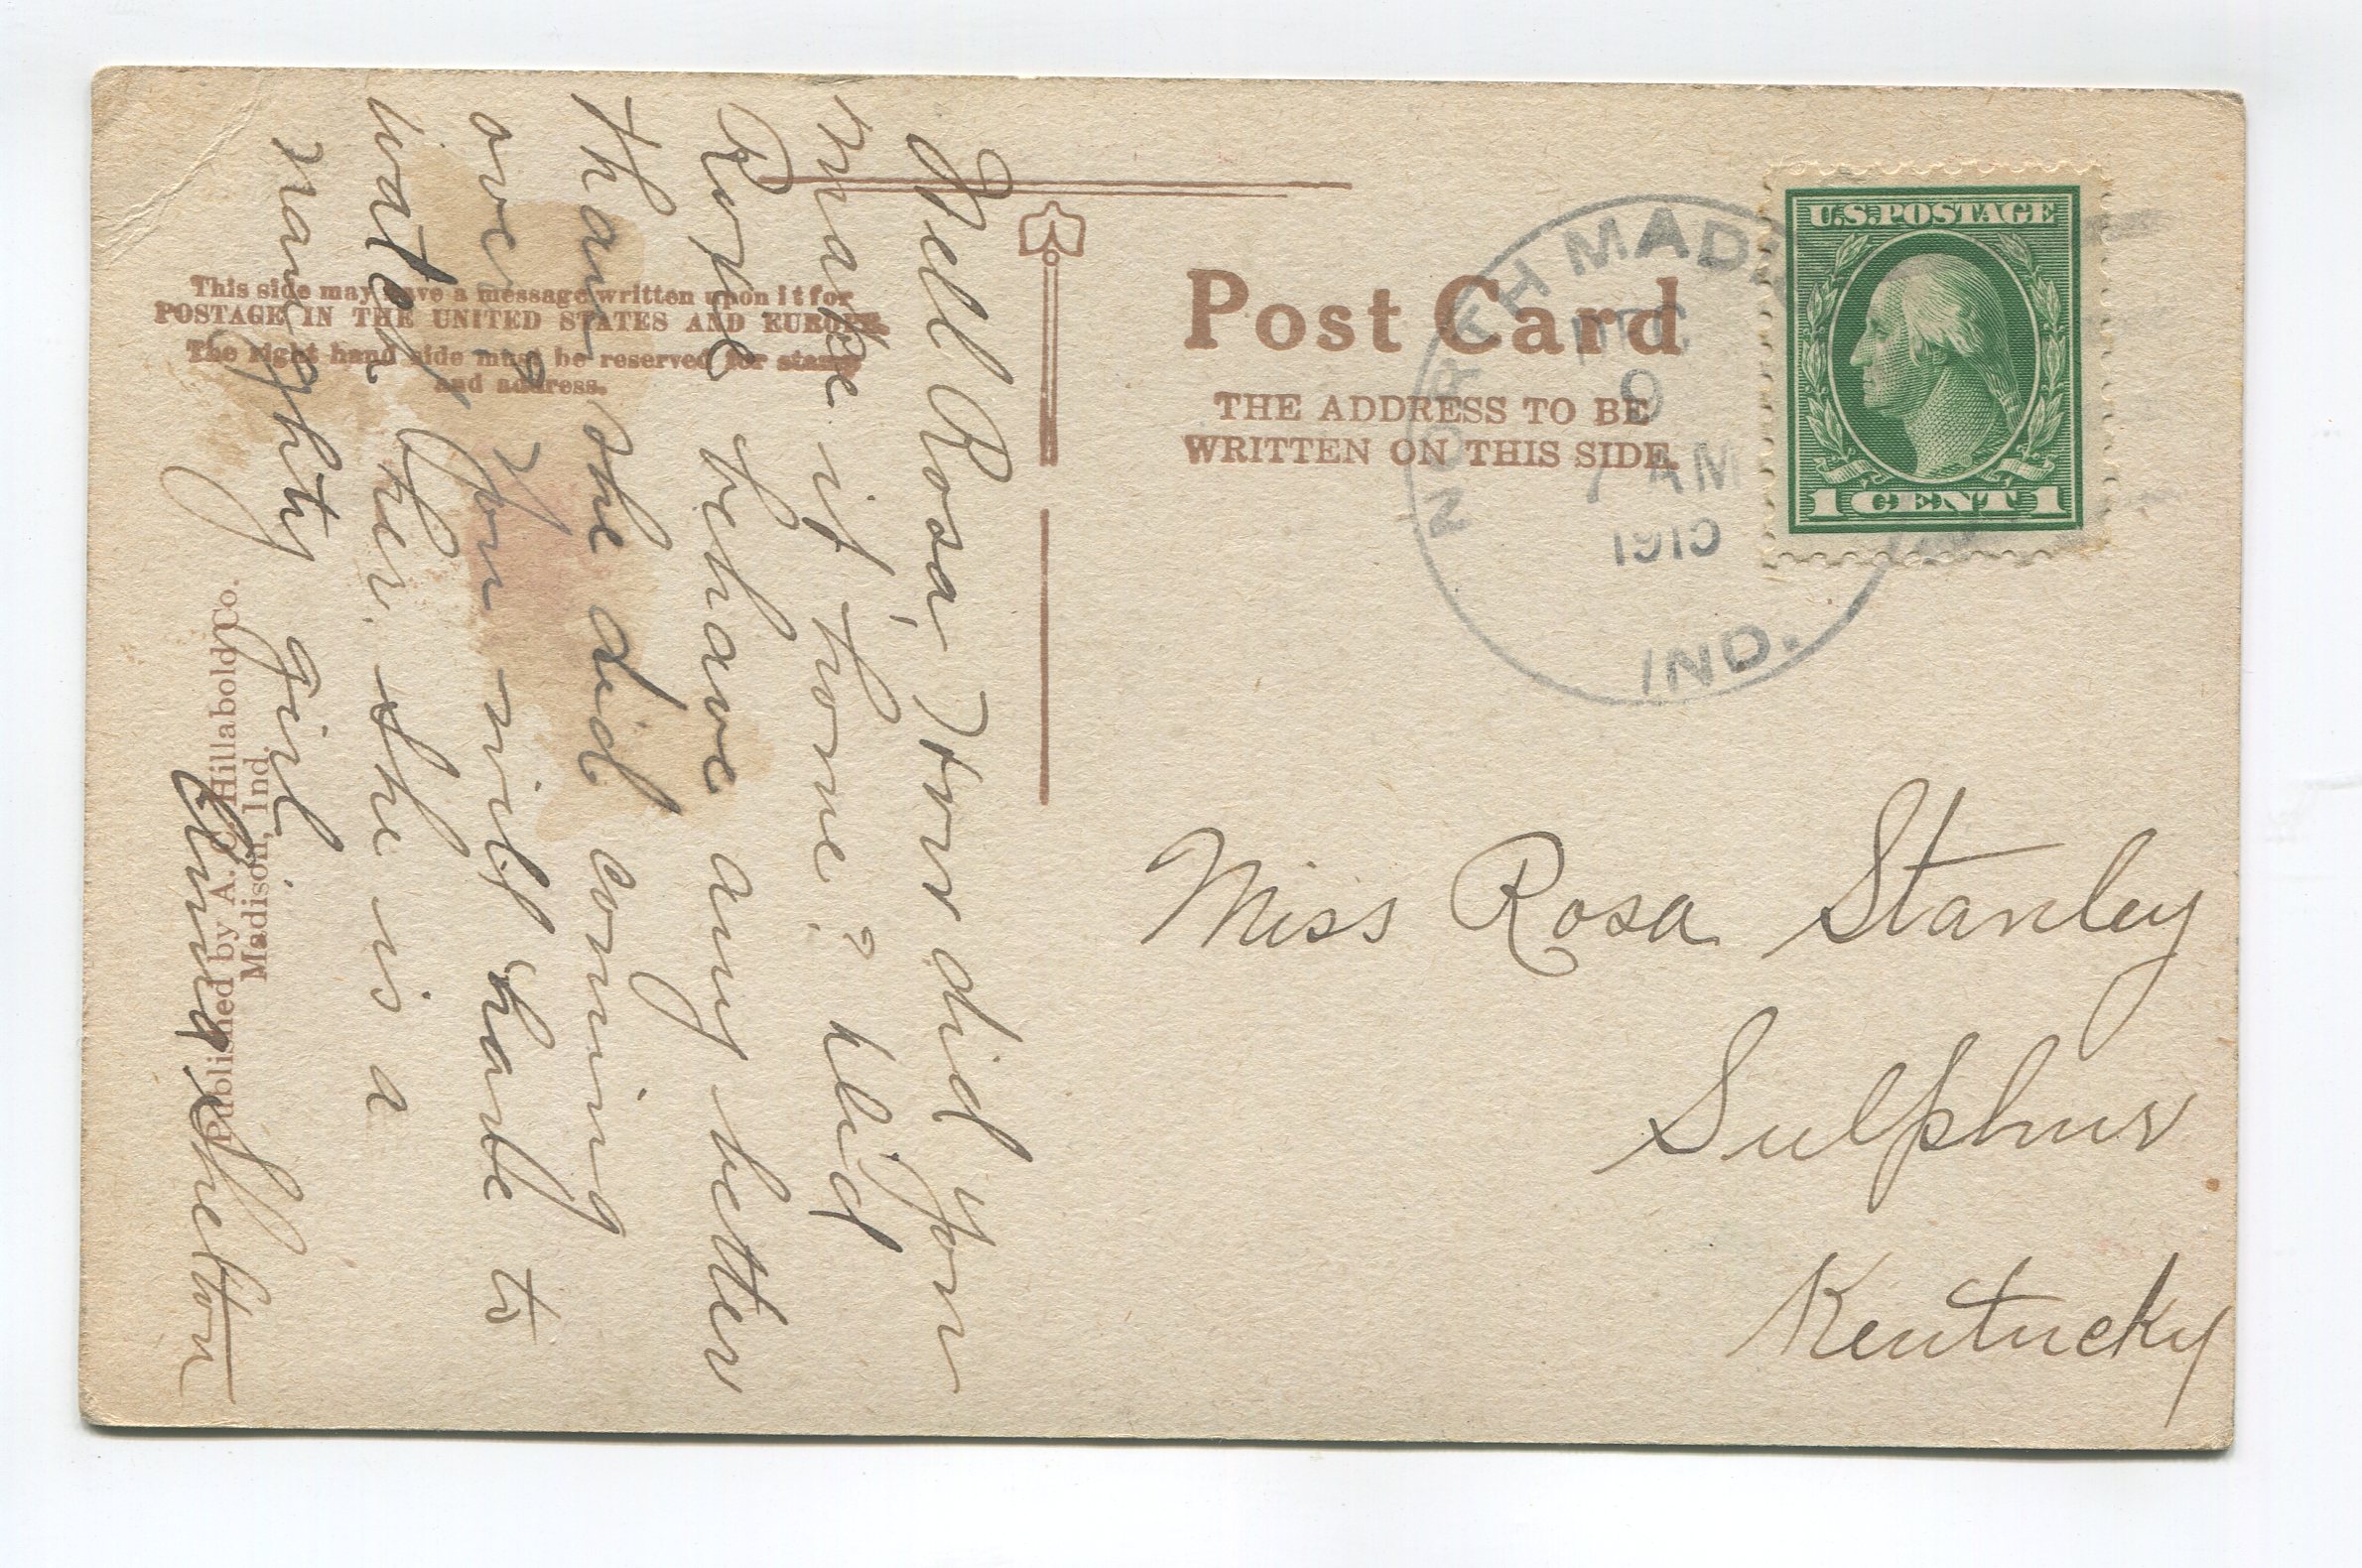 This side may have a message written upon it for
POSTAGE IN THE UNITED STATES AND EUROPE.
The right hand side must be reserved for stamp
and address.
Well Rosa, How did you
make it home? Did
Rosie behave any better
than she did coming
over? You will have to
watch her. She is a
naughty girl
Shelton
Published by A. C. Hillabold Co.
Madison, Ind.
Post Card
THE ADDRESS TO BE
WRITTEN ON THIS SIDE.
NORTH MAD
DEC
9
7 AM
191
IND.
U.S. POSTAGE
1 CENT 1
Miss Rosa Stanley
Sulphur
Kentucky